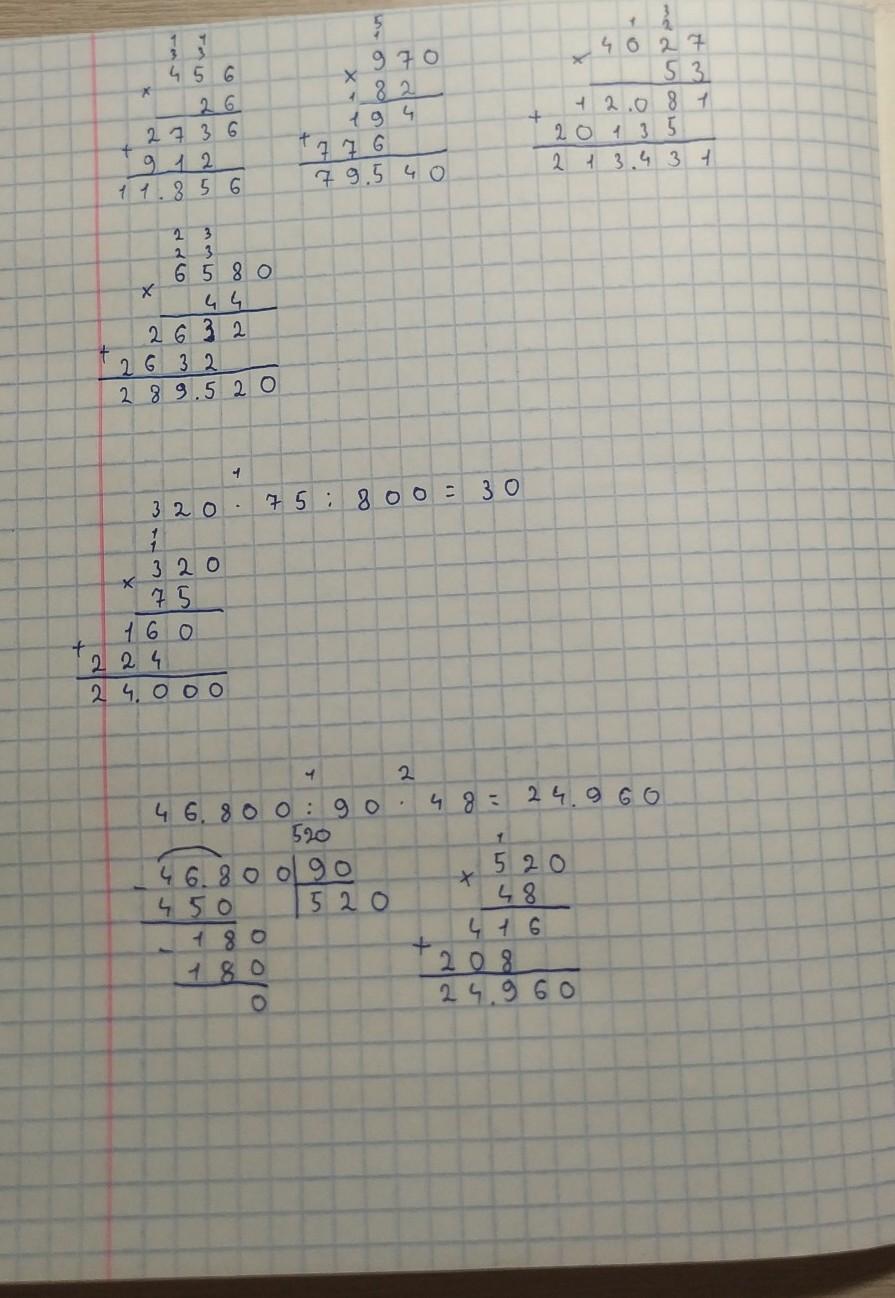 1 1
3 3
4 5 6
× 2 6
2 7 3 6
+ 9 1 2
1 1 . 8 5 6
5
1
9 7 0
× 8 2
1
1 9 4
+ 7 7 6
7 9 . 5 4 0
3
1 2
4 0 2 7
× 5 3
1 2 . 0 8 1
+ 2 0 1 3 5
2 1 3 . 4 3 1
2 3
2 3
6 5 8 0
× 4 4
2 6 3 2
+ 2 6 3 2
2 8 9 . 5 2 0
1
3 2 0 · 7 5 : 8 0 0 = 3 0
1
1
3 2 0
× 7 5
1 6 0
+ 2 2 4
2 4 . 0 0 0
1 2
4 6 . 8 0 0 : 9 0 · 4 8 = 2 4 . 9 6 0
520
- 4 6 . 8 0 0 | 9 0
4 5 0 | 5 2 0
- 1 8 0
1 8 0
0
1
5 2 0
× 4 8
4 1 6
+ 2 0 8
2 4 . 9 6 0